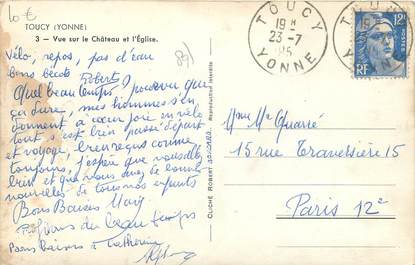 10 €
TOUCY (YONNE)
3 - Vue sur le Château et l'Église.
89)
Vélo, repos, pas d'eau
bons becots Robert
Quel beau temps, pourvu que
ça dure, mes hommes s'en
donnent à cœur joie en vélo
tout s'est bien passé départ
et voyage,
toujours, j'espère que vous allez
bien et que vous nous donnerez
nouvelles de tous nos enfants
Bons Baisers
du beau temps
Bons Baisers à Catherine
CLICHÉ ROBERT
Reproduction interdite
TOUCY
19 H
23 - 7
YONNE
12F
RF
Mme Mr Quarré
15 rue Traversière 15
Paris 12e